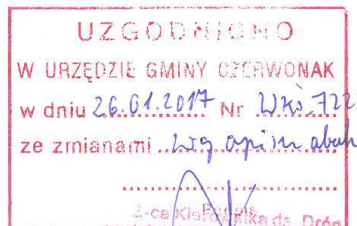 UZGODNIONO
W URZĘDZIE GMINY CZERWONAK
w dniu 26.01.2017 Nr WKŚ.722
ze zmianami wg opisu
Z-ca Kierownika ds. Dróg